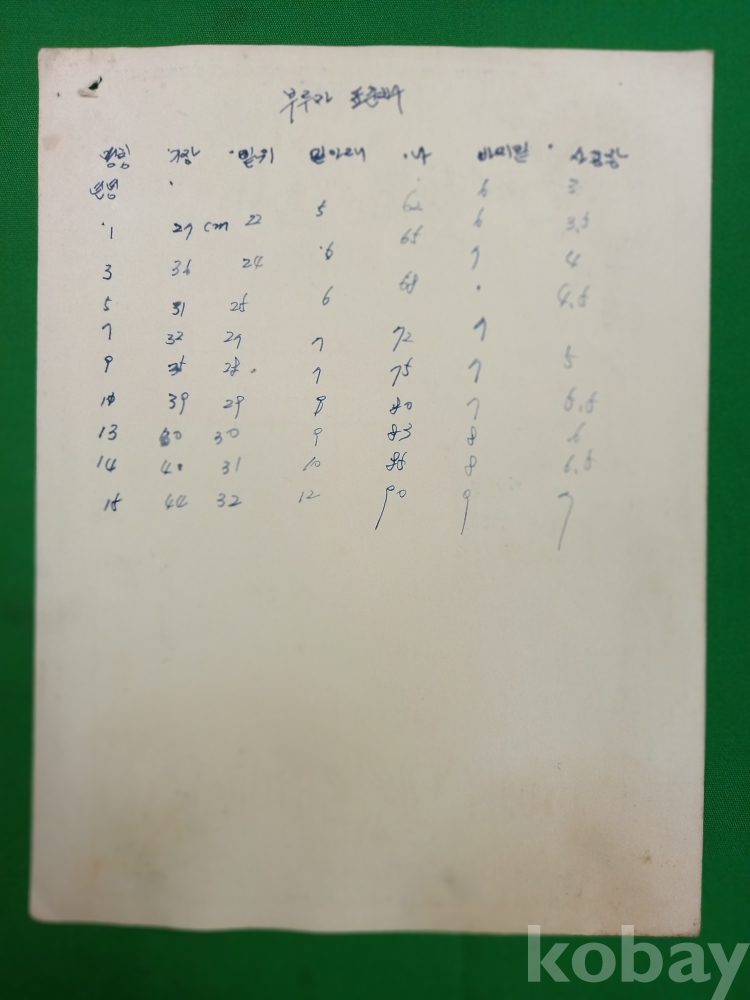 부루마 표준치수
명칭 기장 밑위 밑아래 나 바지밀
연령 6 3
1 27 cm 22 5 62 6 3.5
3 36 24 6 65 7 4
5 31 25 6 68 4.5
7 32 27 7 72 7
9 35 28 7 75 7 5
39 29 8 80 7 5.5
13 30 9 83 8 6
14 40 31 10 85 8 6.5
15 44 32 12 90 9 7
kobay